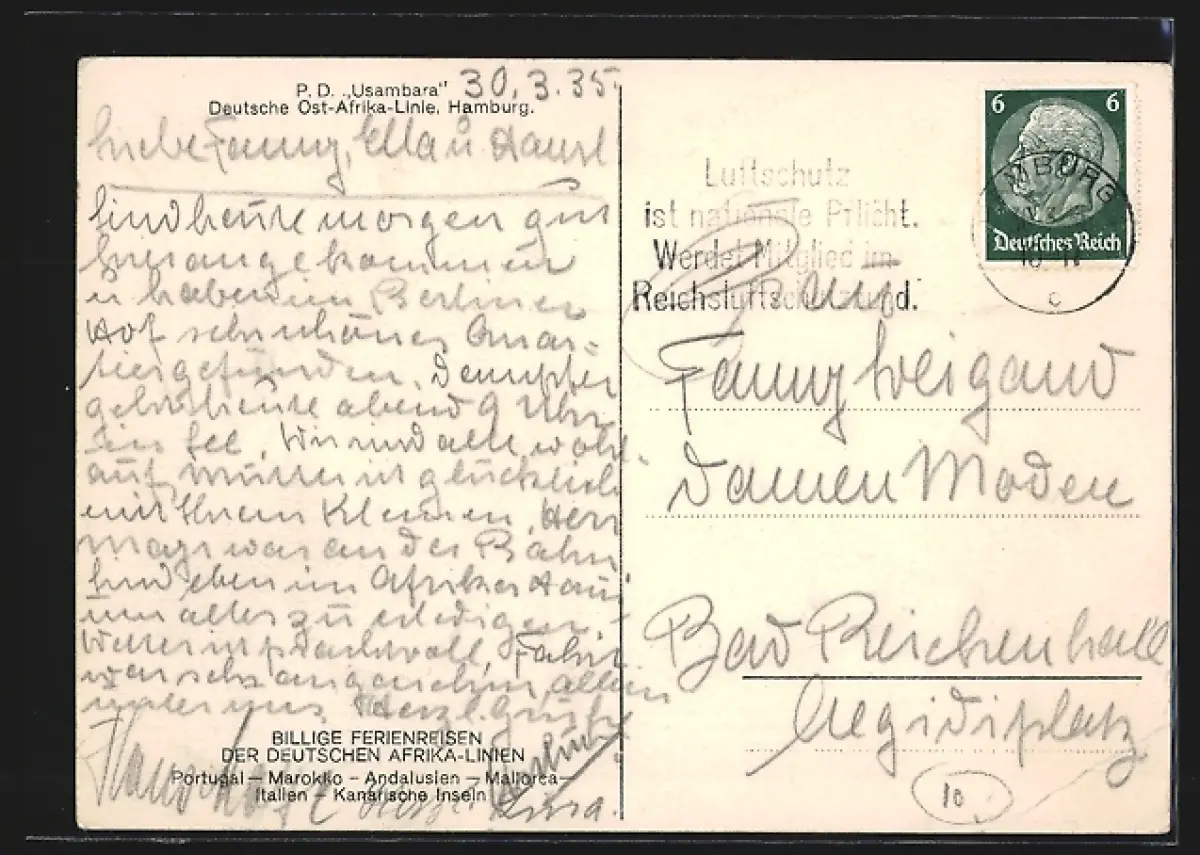 P. D. „Usambara" 30.3.35.
Deutsche Ost-Afrika-Linie, Hamburg.
Liebe Fanny, Ella u. Hansl
Sind heute morgen gut
hier angekommen
u haben im Berliner
Hof sehr schönes Quar=
tier gefunden. Dampfer
geht heute abend 9 Uhr
Wir sind alle wohl
auf, Mutter ist glücklich
mit Ihrem Kleinen, Herr
Mayr war an der Bahn
sind eben im Afrika Haus
um alles zu erledigen.
Wetter ist prachtvoll, Fahrt
war sehr angenehm, allen
Herzl. Grüße
BILLIGE FERIENREISEN
DER DEUTSCHEN AFRIKA-LINIEN
Portugal — Marokko - Andalusien — Mallorca —
Italien - Kanarische Inseln
Luftschutz
ist nationale Pflicht.
Werdet Mitglied im
Reichsluftschutzbund.
6 6
Deutsches Reich
MBURG
10-11
c
Fanny Weigand
Damen Moden
Bad Reichenhall
Aegidiplatz
10